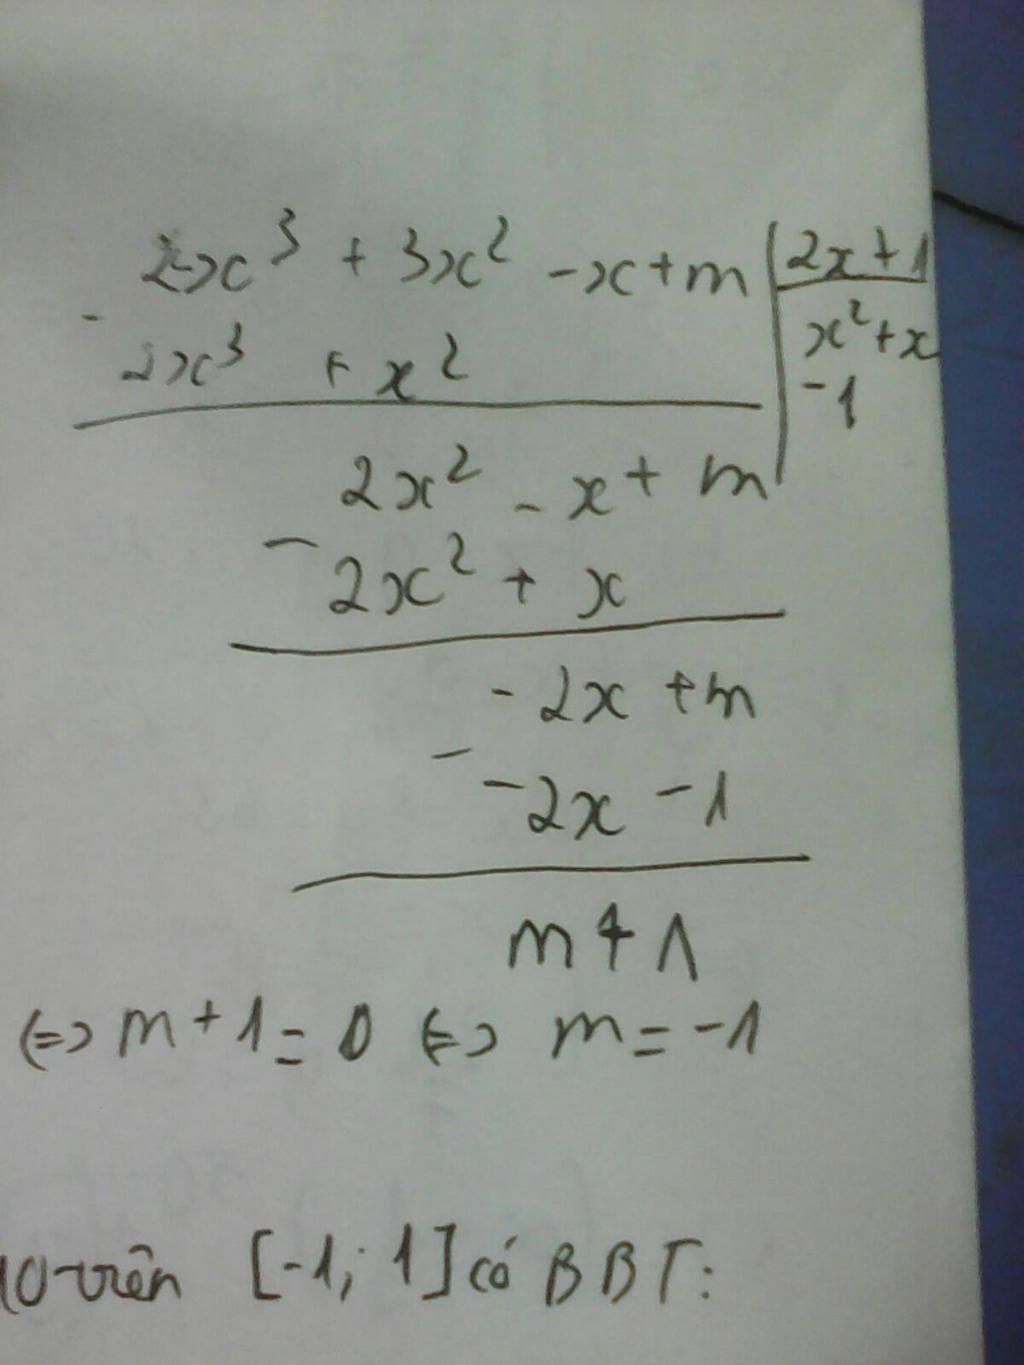 2x³ + 3x² - x + m | 2x + 1
- 2x³ + x² | x² + x
- 1
2x² - x + m
- 2x² + x
- 2x + m
- - 2x - 1
m + 1
⇔ m + 1 = 0 ⇔ m = -1
trên [-1; 1] có BBT: